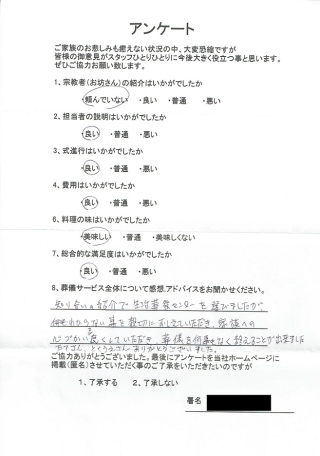 アンケート
ご家族のお悲しみも癒えない状況の中、大変恐縮ですが
皆様の御意見がスタッフひとりひとりに今後大きく役立つ事と思います。
ぜひご協力お願い致します。
1、宗教者(お坊さん)の紹介はいかがでしたか
・頼んでいない ・良い ・普通 ・悪い
2、担当者の説明はいかがでしたか
・良い ・普通 ・悪い
3、式進行はいかがでしたか
・良い ・普通 ・悪い
4、費用はいかがでしたか
・良い ・普通 ・悪い
6、料理の味はいかがでしたか
・美味しい ・普通 ・美味しくない
7、総合的な満足度はいかがでしたか
・良い ・普通 ・悪い
8、葬儀サービス全体について感想、アドバイスをお聞かせください。
知り合いの紹介で生活葬祭センターを選びましたが、
何もわからない事を親切におしえていただき、家族への
心づかいも良くしていただき 葬儀を何事もなく終えることが出来ました
ありがとうございました。
ご協力ありがとうございました。最後にアンケートを当社ホームページに
掲載(匿名)させていただく事のご了承をいただきたいのですが
1、了承する 2、了承しない
署名